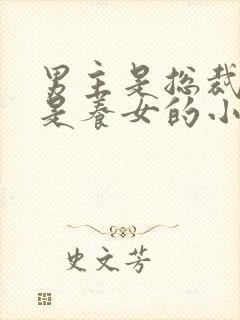 男主是总裁
是养女的小
史文芳